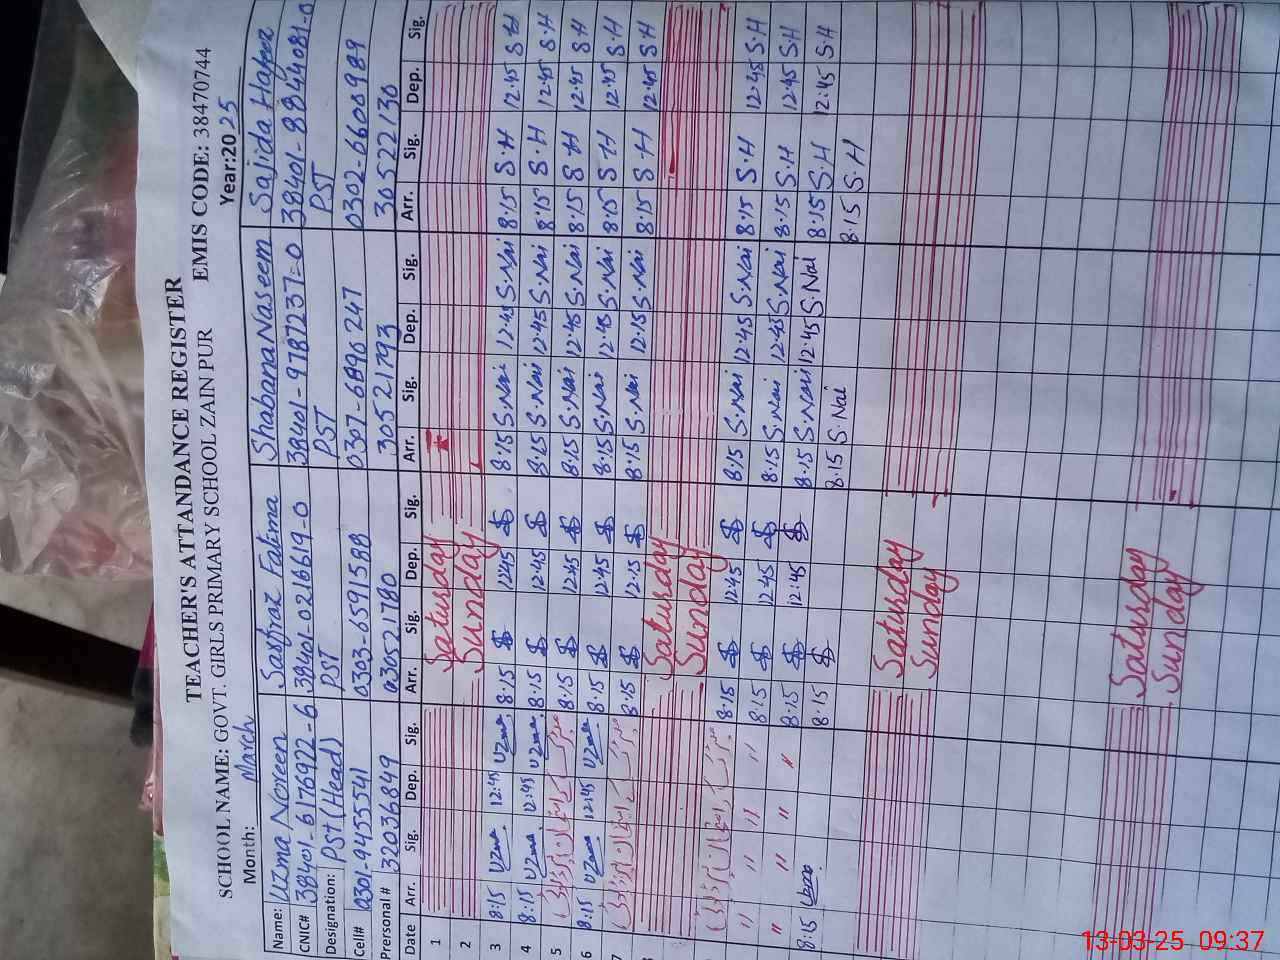 TEACHER'S ATTANDANCE REGISTER
SCHOOL NAME: GOVT. GIRLS PRIMARY SCHOOL ZAIN PUR EMIS CODE: 38470744
Month: March Year:2025
Name: Uzma Noreen Sarfraz Fatima Shabana Naseem Sajida
CNIC# 38401-6176922-6 38401-0216619-0 38401-9787237-0 38401-8844081-0
Designation: PST (Head) PST PST PST
Cell# 0301-9455541 0303-6591588 0307-6896247 0302-6600989
Personal # 32036849 30521780 30521793 30522130
Date Arr. Sig. Dep. Sig. Arr. Sig. Dep. Sig. Arr. Sig. Dep. Sig. Arr. Sig. Dep. Sig.
1 Saturday
2 Sunday
3 8:15 Uzma 12:45 Uzma 8:15 12:45 8:15 S.Nai 12:45 S.Nai 8:15 S.H 12:45 S.H
4 8:15 Uzma 12:45 Uzma 8:15 12:45 8:15 S.Nai 12:45 S.Nai 8:15 S.H 12:45 S.H
5 8:15 12:45 8:15 S.Nai 12:45 S.Nai 8:15 S.H 12:45 S.H
6 8:15 Uzma 12:45 Uzma 8:15 12:45 8:15 S.Nai 12:45 S.Nai 8:15 S.H 12:45 S.H
7 8:15 12:15 8:15 S.Nai 12:15 S.Nai 8:15 S.H 12:45 S.H
8 Saturday
Sunday
8:15 12:45 8:15 S.Nai 12:45 S.Nai 8:15 S.H 12:45 S.H
" " " " 8:15 12:45 8:15 S.Nai 12:45 S.Nai 8:15 S.H 12:45 S.H
" " " " 8:15 12:45 8:15 S.Nai 12:45 S.Nai 8:15 S.H 12:45 S.H
8:15 Uzma 8:15 8:15 S.Nai 8:15 S.H
Saturday
Sunday
Saturday
Sunday
13-03-25 09:37